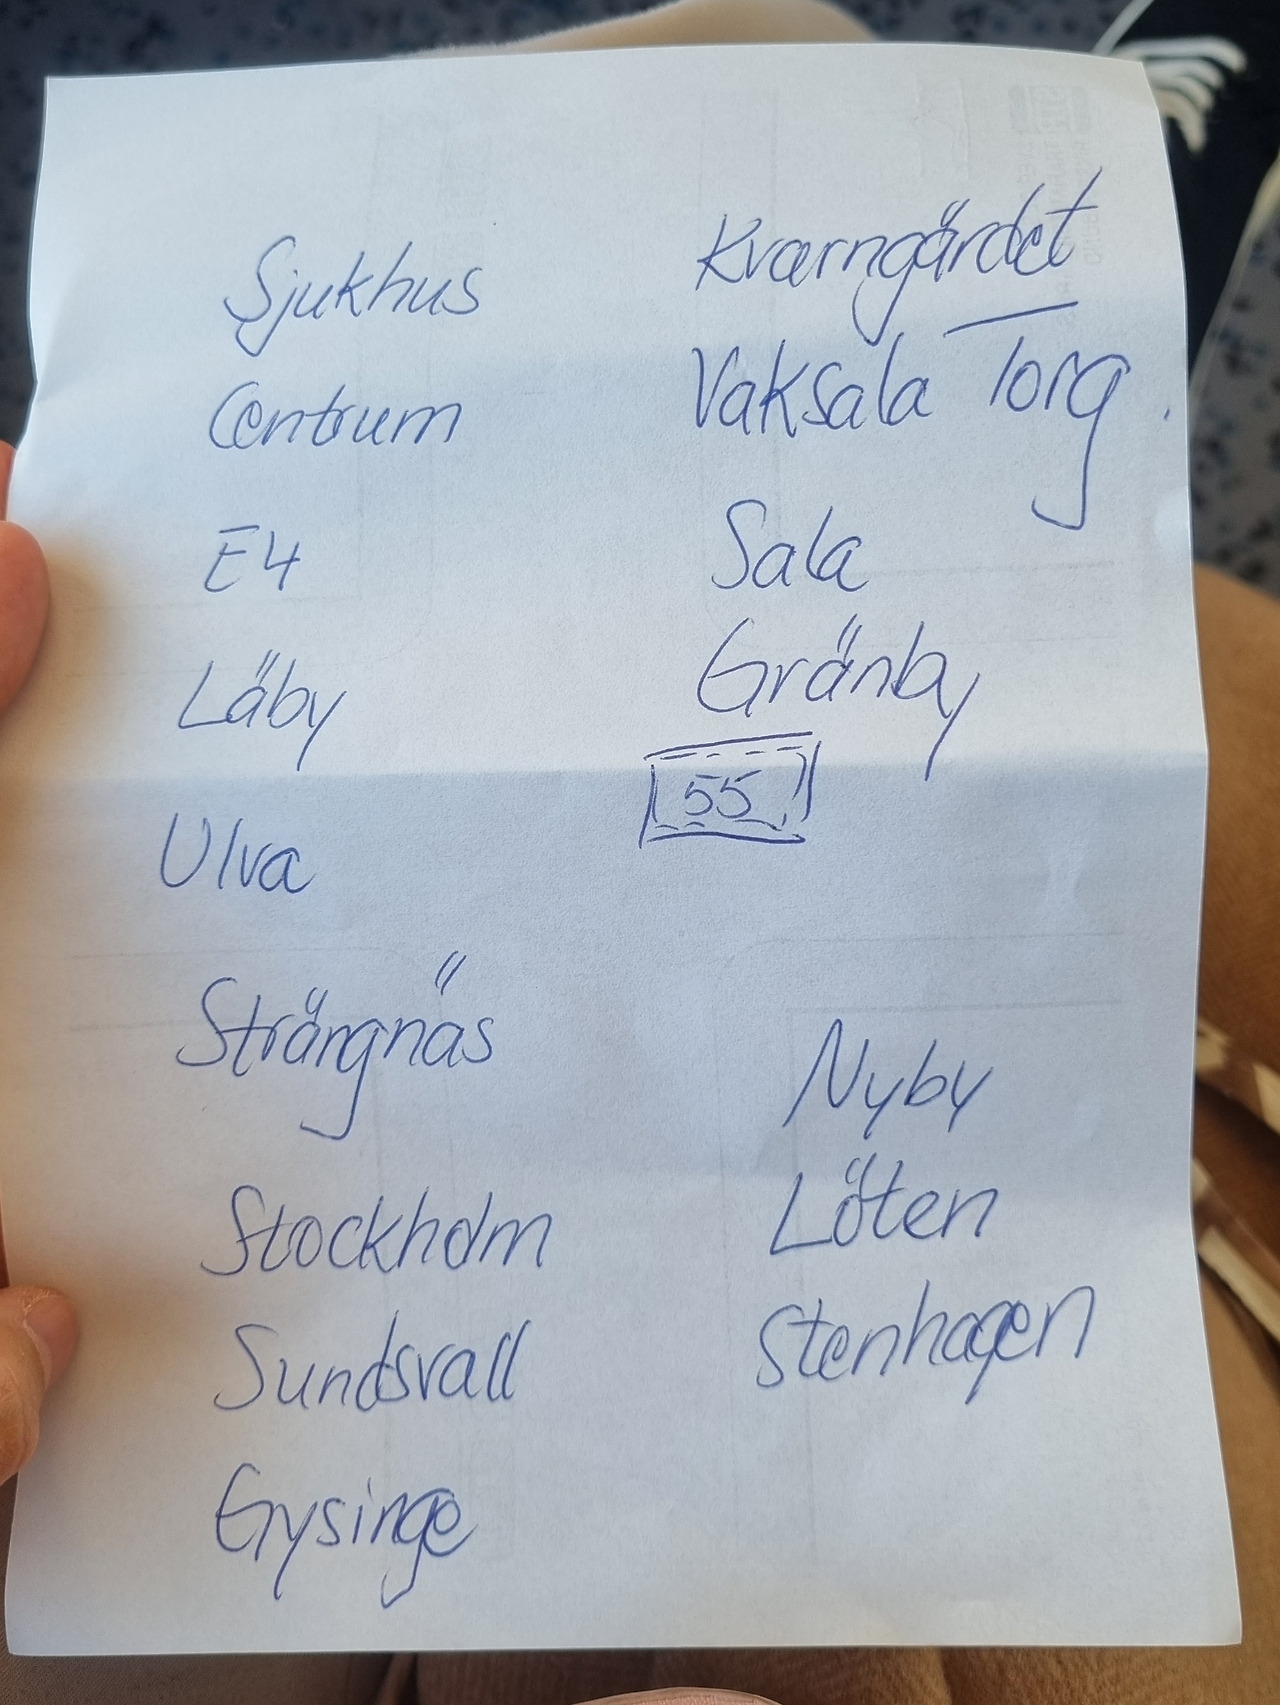 Sjukhus
Centrum
E4
Läby
Ulva
Strängnäs
Stockholm
Sundsvall
Gysinge
Kvarngärdet
Vaksala Torg
Sala
Gränby
55
Nyby
Löten
Stenhagen